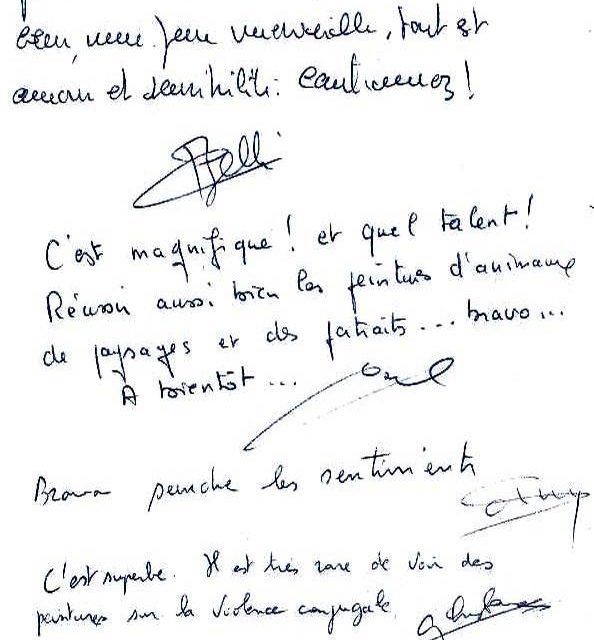 bien, une pure merveille, tout est
amour et sensibilité. Continuez!
C'est magnifique! et quel talent!
Réussir aussi bien les peintures d'animaux
de paysages et des portraits... bravo...
A bientôt...
Bravo les sentiments
C'est superbe. Il est très rare de voir des
peintures sur la violence conjugale.